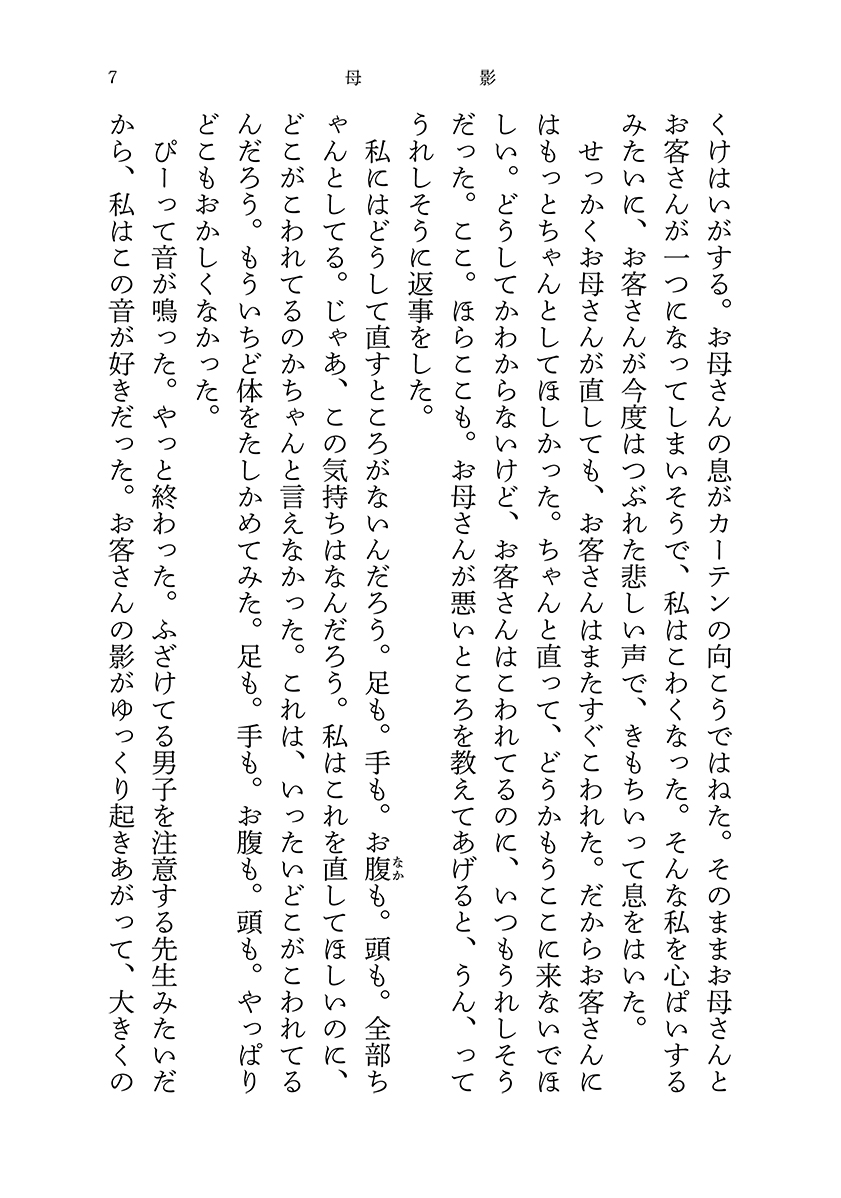 7
母影
くけはいがする。お母さんの息がカーテンの向こうではねた。そのままお母さんと
お客さんが一つになってしまいそうで、私はこわくなった。そんな私を心ぱいする
みたいに、お客さんが今度はつぶれた悲しい声で、きもちいって息をはいた。
せっかくお母さんが直しても、お客さんはまたすぐこわれた。だからお客さんに
はもっとちゃんとしてほしかった。ちゃんと直って、どうかもうここに来ないでほ
しい。どうしてかわからないけど、お客さんはこわれてるのに、いつもうれしそう
だった。ここ。ほらここも。お母さんが悪いところを教えてあげると、うん、って
うれしそうに返事をした。
私にはどうして直すところがないんだろう。足も。手も。お腹も。頭も。全部ち
なか
ゃんとしてる。じゃあ、この気持ちはなんだろう。私はこれを直してほしいのに、
どこがこわれてるのかちゃんと言えなかった。これは、いったいどこがこわれてる
んだろう。もういちど体をたしかめてみた。足も。手も。お腹も。頭も。やっぱり
どこもおかしくなかった。
ぴーって音が鳴った。やっと終わった。ふざけてる男子を注意する先生みたいだ
から、私はこの音が好きだった。お客さんの影がゆっくり起きあがって、大きくの